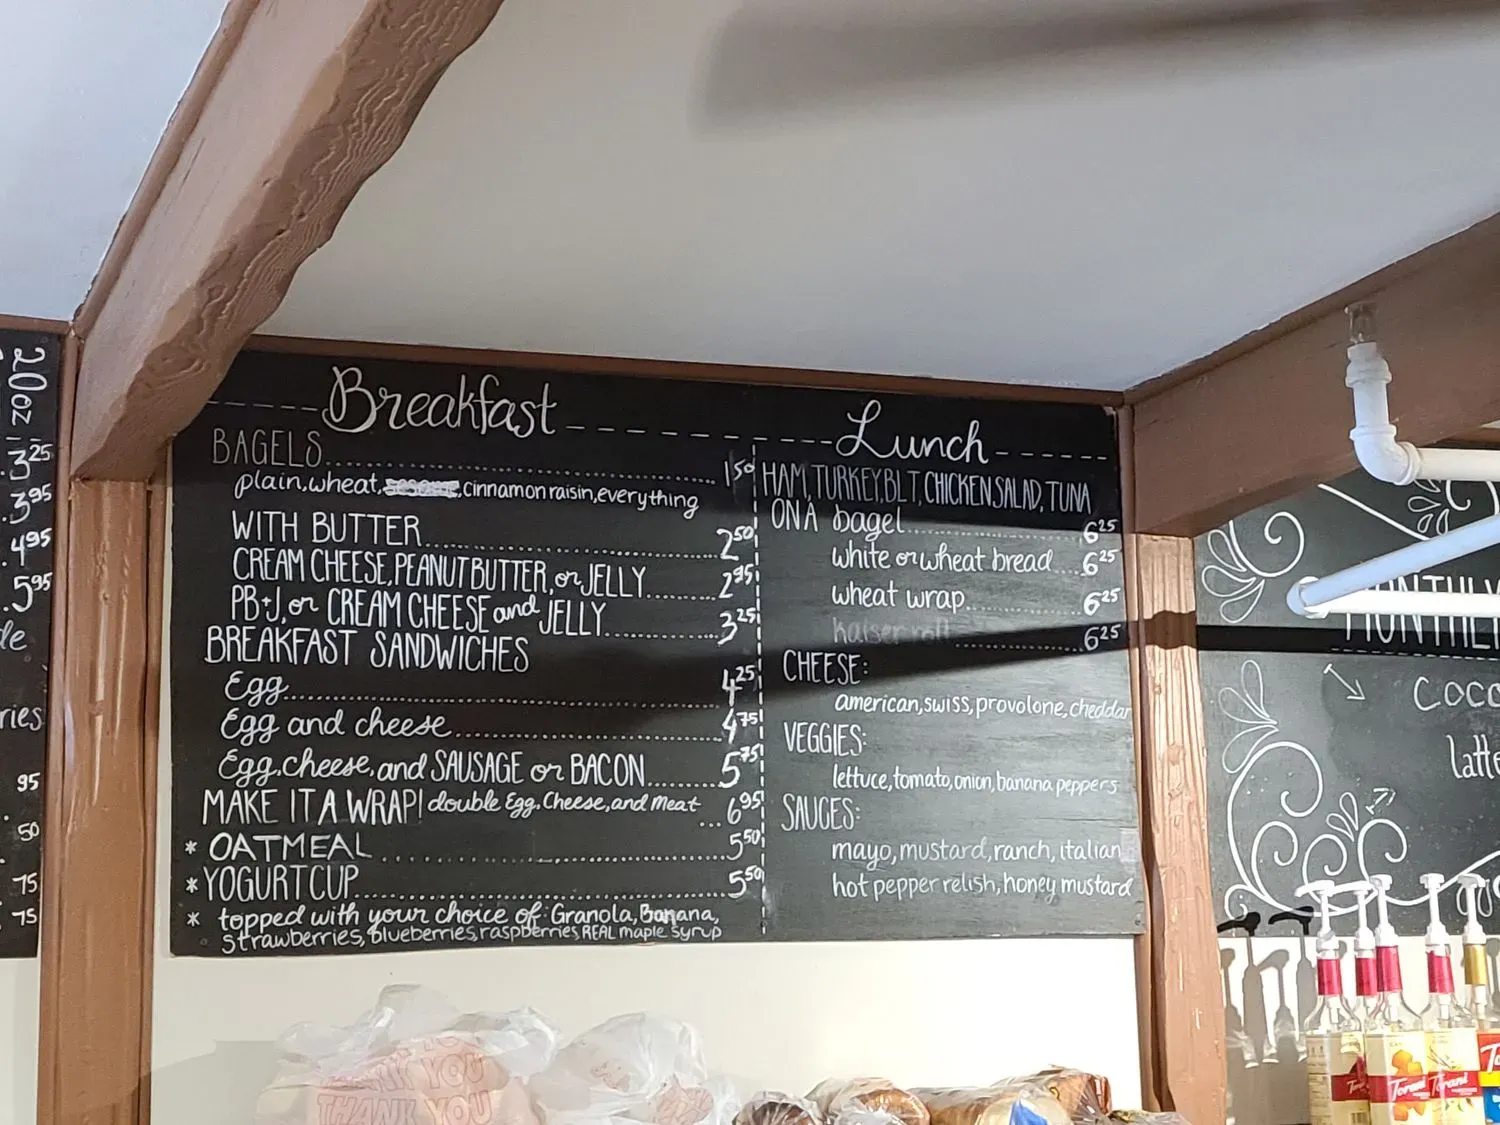 20oz
3.25
3.95
4.95
5.95
ries
95
50
75
75
Breakfast
BAGELS 1.50
plain, wheat, sesame, cinnamon raisin, everything
WITH BUTTER 2.50
CREAM CHEESE, PEANUT BUTTER, or JELLY 2.95
PB+J, or CREAM CHEESE and JELLY 3.25
BREAKFAST SANDWICHES
Egg 4.25
Egg and cheese 4.75
Egg, cheese, and SAUSAGE or BACON 5.75
MAKE IT A WRAP! double Egg, Cheese, and Meat 6.95
* OATMEAL 5.50
* YOGURT CUP 5.50
* topped with your choice of: Granola, Banana,
strawberries, blueberries, raspberries, REAL maple syrup
Lunch
HAM, TURKEY, BLT, CHICKEN SALAD, TUNA
ON A bagel 6.25
white or wheat bread 6.25
wheat wrap 6.25
kaiser roll 6.25
CHEESE:
american, swiss, provolone, cheddar
VEGGIES:
lettuce, tomato, onion, banana peppers
SAUCES:
mayo, mustard, ranch, italian
hot pepper relish, honey mustard
MONTHLY
COCO
latte
THANK YOU
THANK YOU
Torani
Torani